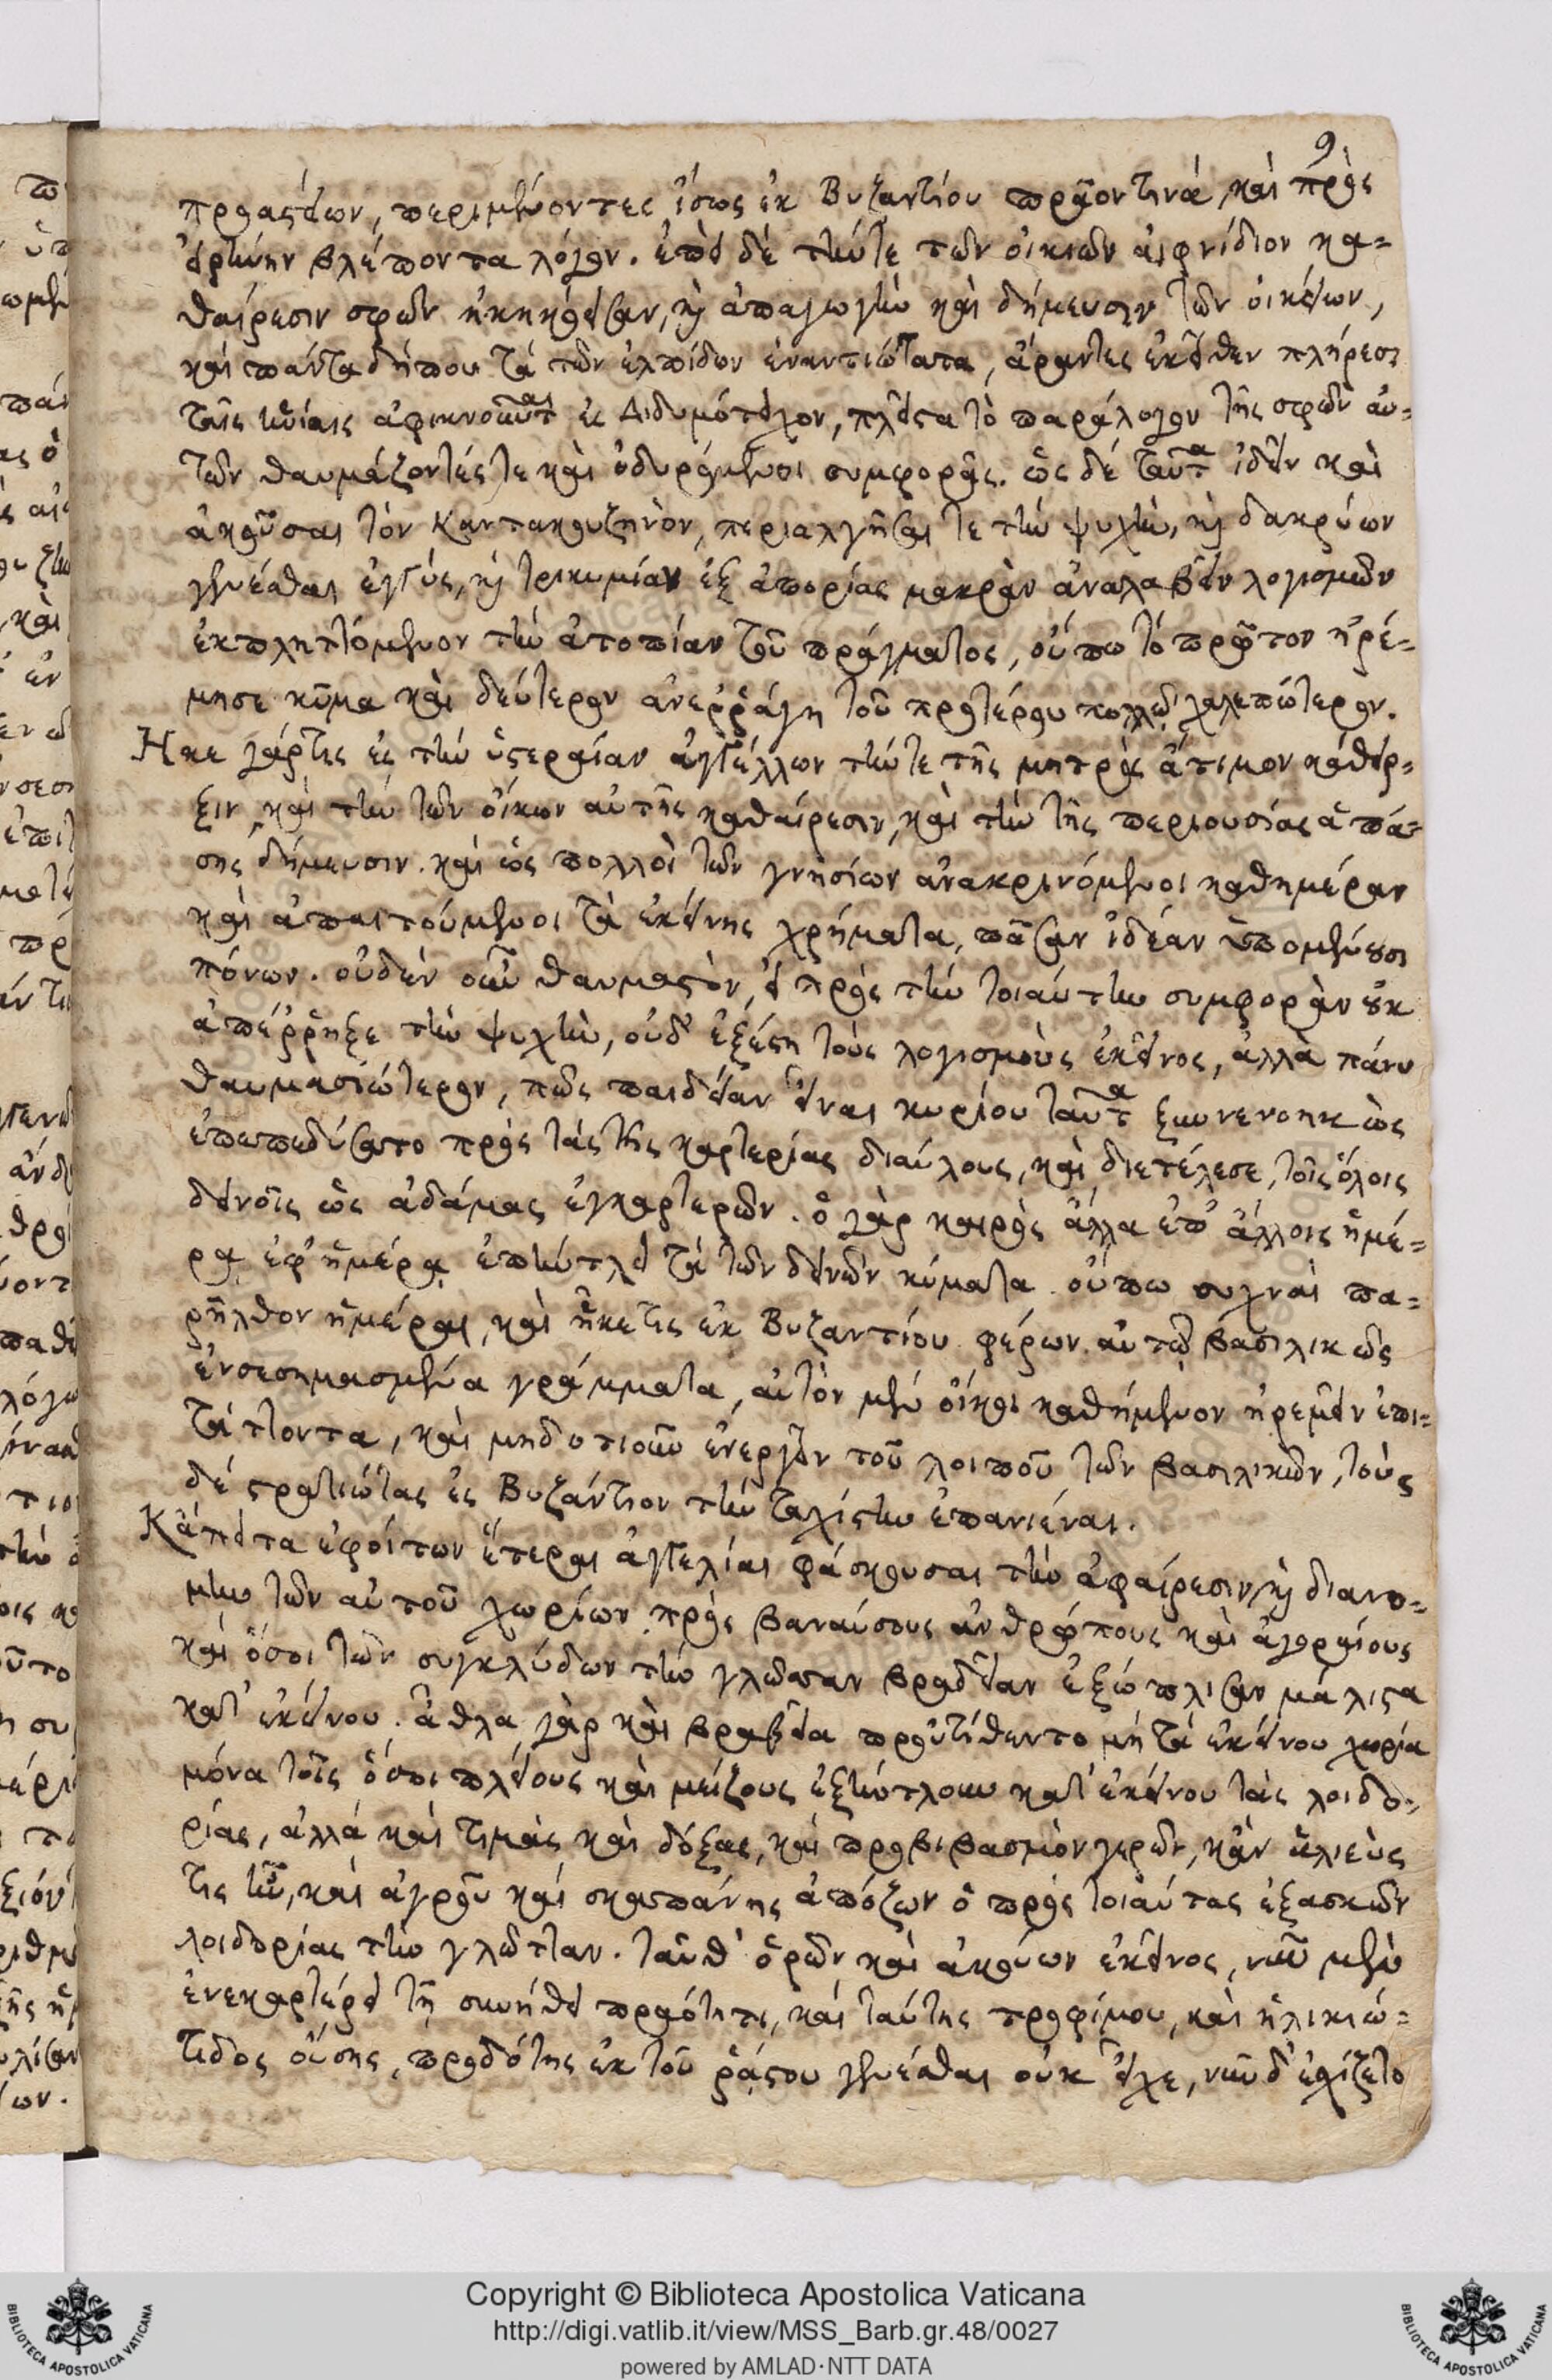 9.
προαστείων, περιμένοντες ἴσως ἐκ Βυζαντίου πρᾶόν τινα καὶ πρὸς
εἰρήνην βλέποντα λόγον. ἐπεὶ δὲ τήν τε τῶν οἰκιῶν αἰφνίδιον κα=
θαίρεσιν σφῶν ἠκηκόεισαν, καὶ ἀπαγωγὴν καὶ δήμευσιν τῶν οἰκείων,
καὶ πάντα δήπου τὰ τῶν ἐλπίδων ἐναντιώτατα, ἄραντες ἐκεῖθεν πλήρεσι
τοῖς ἱστίοις ἀφικνοῦνται ἐς Διδυμότειχον, πλεῖστα τὸ παράλογον τῆς σφῶν αὐ=
τῶν θαυμάζοντές τε καὶ ὀδυρόμενοι συμφορᾶς. ὡς δὲ ταῦτα ἰδεῖν καὶ
ἀκοῦσαι τὸν Καντακουζηνὸν, περιαλγῆσαι τε τὴν ψυχὴν, καὶ δακρύων
γενέσθαι ἐγγύς, καὶ τρικυμίαν ἐξ ἀπορίας μακρὰν ἀναλαβεῖν λογισμῶν
ἐκπληττόμενον τὴν ἀτοπίαν τοῦ πράγματος, οὔπω τὸ πρῶτον ἠρέ=
μησε κῦμα καὶ δεύτερον ἀνερράγη τοῦ προτέρου πολλῷ χαλεπώτερον.
Ἧκε γάρ τις ἐς τὴν ὑστεραίαν ἀγγέλλων τήν τε τῆς μητρὸς ἄτιμον κάθειρ=
ξιν, καὶ τὴν τῶν οἴκων αὐτῆς καθαίρεσιν, καὶ τὴν τῆς περιουσίας ἁπά=
σης δήμευσιν. καὶ ὡς πολλοὶ τῶν γνησίων ἀνακρινόμενοι καθημέραν
καὶ ἀπαιτούμενοι τὰ ἐκείνης χρήματα, πᾶσαν ἰδέαν ὑπομένουσι
πόνων. οὐδὲν οὖν θαυμαστὸν, εἰ πρὸς τὴν τοιαύτην συμφορὰν οὐκ
ἀπέρρηξε τὴν ψυχὴν, οὐδ' ἐξέστη τοὺς λογισμοὺς ἐκεῖνος, ἀλλὰ πάνυ
θαυμασιώτερον, πῶς παιδείαν εἶναι κυρίου ταῦτα ξυννενοηκὼς
ἐπεπεδύσατο πρὸς τὰς τῆς καρτερίας διαύλους, καὶ διετέλεσε, τοῖς ὅλοις
δεινοῖς ὡς ἀδάμας ἐγκαρτερῶν. ὁ γὰρ καιρὸς ἄλλα ἐπ' ἄλλοις ἡμέ=
ρᾳ ἐφ' ἡμέρᾳ ἐπήντλει τὰ τῶν δεινῶν κύματα. οὔπω συχναὶ πα=
ρῆλθον ἡμέραι, καὶ ἧκέ τις ἐκ Βυζαντίου φέρων αὐτῷ βασιλικῶς
ἐνσεσημασμένα γράμματα, αὐτὸν μὲν οἴκοι καθήμενον ἠρεμεῖν ἐπι=
τάττοντα, καὶ μηδοτιοῦν ἐνεργεῖν τοῦ λοιποῦ τῶν βασιλικῶν, τοὺς
δὲ στρατιώτας ἐς Βυζάντιον τὴν ταχίστην ἐπανιέναι.
Κἄπειτα ἐφοίτων ἕτεραι ἀγγελίαι φάσκουσαι τὴν ἀφαίρεσιν καὶ διανο=
μὴν τῶν αὐτοῦ χωρίων πρὸς βαναύσους ἀνθρώπους καὶ ἀγοραίους
καὶ ὅσοι τῶν συγκλύδων τὴν γλῶσσαν βραδεῖαν ἐξώπλισαν μάλιστα
κατ' ἐκείνου. ἆθλα γὰρ καὶ βραβεῖα προὐτίθεντο μὴ τὰ ἐκείνου χωρία
μόνα τοῖς ὅσοι πλείους καὶ μείζους ἐξήντλουν κατ' ἐκείνου τὰς λοιδο=
ρίας, ἀλλὰ καὶ τιμὰς καὶ δόξας, καὶ προβιβασμὸν γερῶν, κἂν ἁλιεὺς
τις ἦν, καὶ ἀγροῦ καὶ σκαπάνης ἀπόζων ὁ πρὸς τοιαύτας ἐξασκῶν
λοιδορίας τὴν γλῶτταν. ταῦθ' ὁρῶν καὶ ἀκούων ἐκεῖνος, νῦν μὲν
ἐνεκαρτέρει τῇ συνήθει πραότητι, καὶ ταύτης τροφίμου, καὶ ἡλικιώ=
τιδος οὔσης, προδότης ἐκ τοῦ ῥᾴστου γενέσθαι οὐκ εἶχε, νῦν δ' ἐσχίζετο